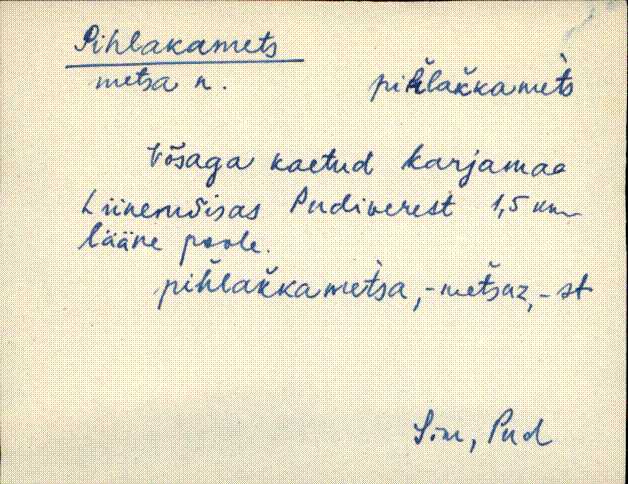 Pihlakamets
metsa n. pih̆lak̆kamèts
Võsaga kaetud karjamaa
Liinemõisas Pudiverest 1,5 km
lääne poole.
pih̆lak̆kamètsa, -mets̆az, -st
Sim, Pud